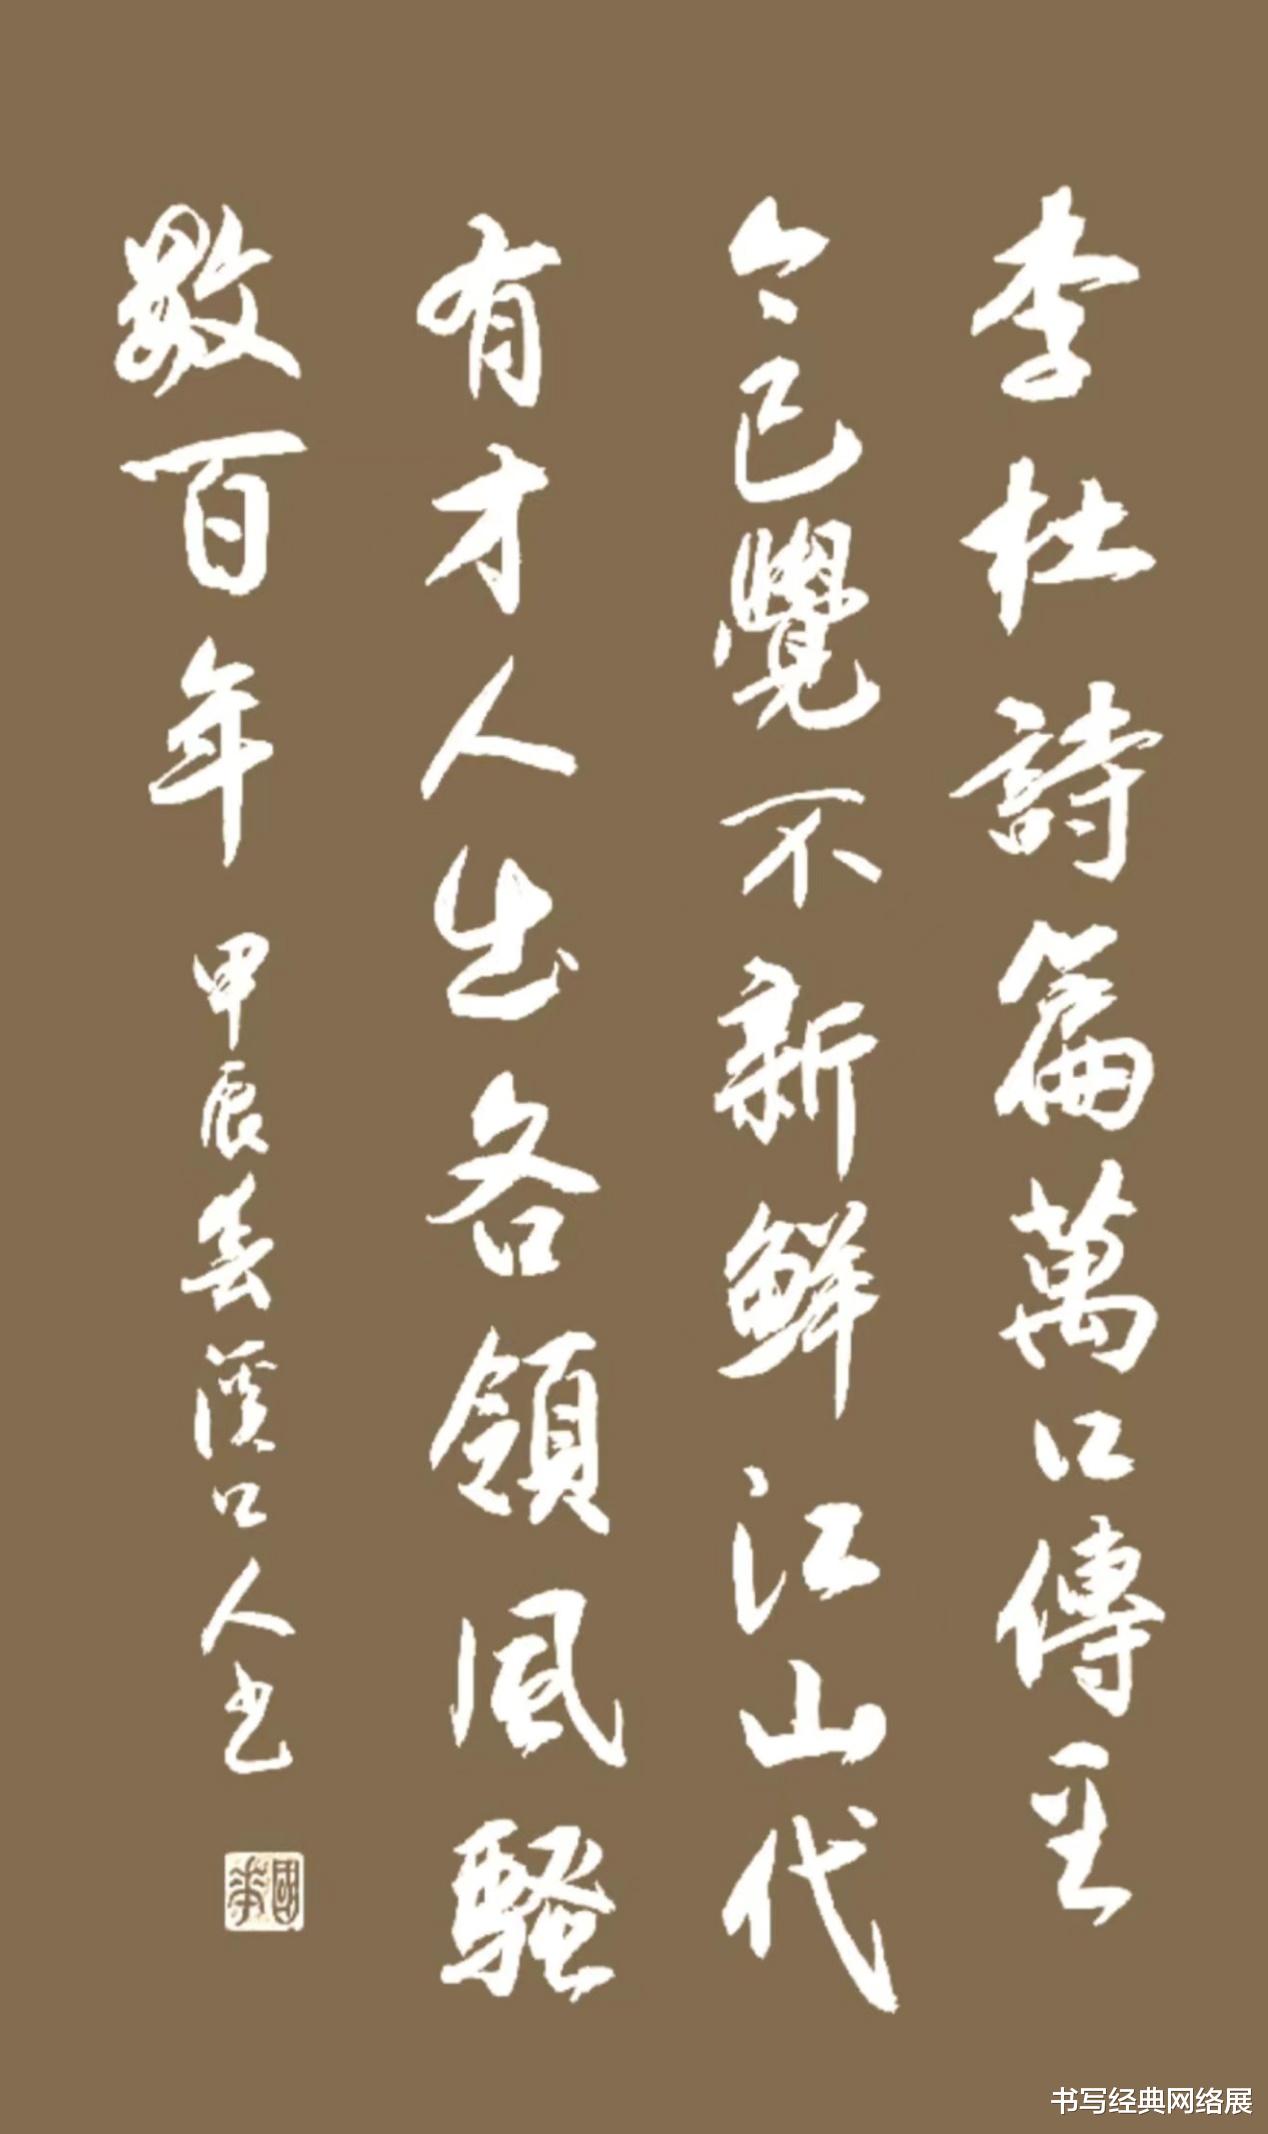 李杜詩篇萬口傳至
今已覺不新鮮江山代
有才人出各領風騷
數百年
甲辰春溪口人书
書写经典网络展